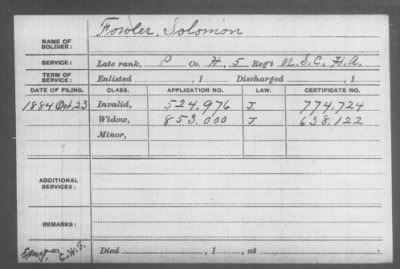 NAME OF SOLDIER: Fowler, Solomon
SERVICE: Late rank, P Co. H, 5 Reg't U.S.C.H.A.
TERM OF SERVICE: Enlisted , 1 Discharged , 1
DATE OF FILING. CLASS. APPLICATION NO. LAW. CERTIFICATE NO.
1884 Oct. 23 Invalid, 524.976 J. 774.724
Widow, 853.000 J 638.122
Minor,
ADDITIONAL SERVICES:
REMARKS:
C.W.F. Died , 1 , at